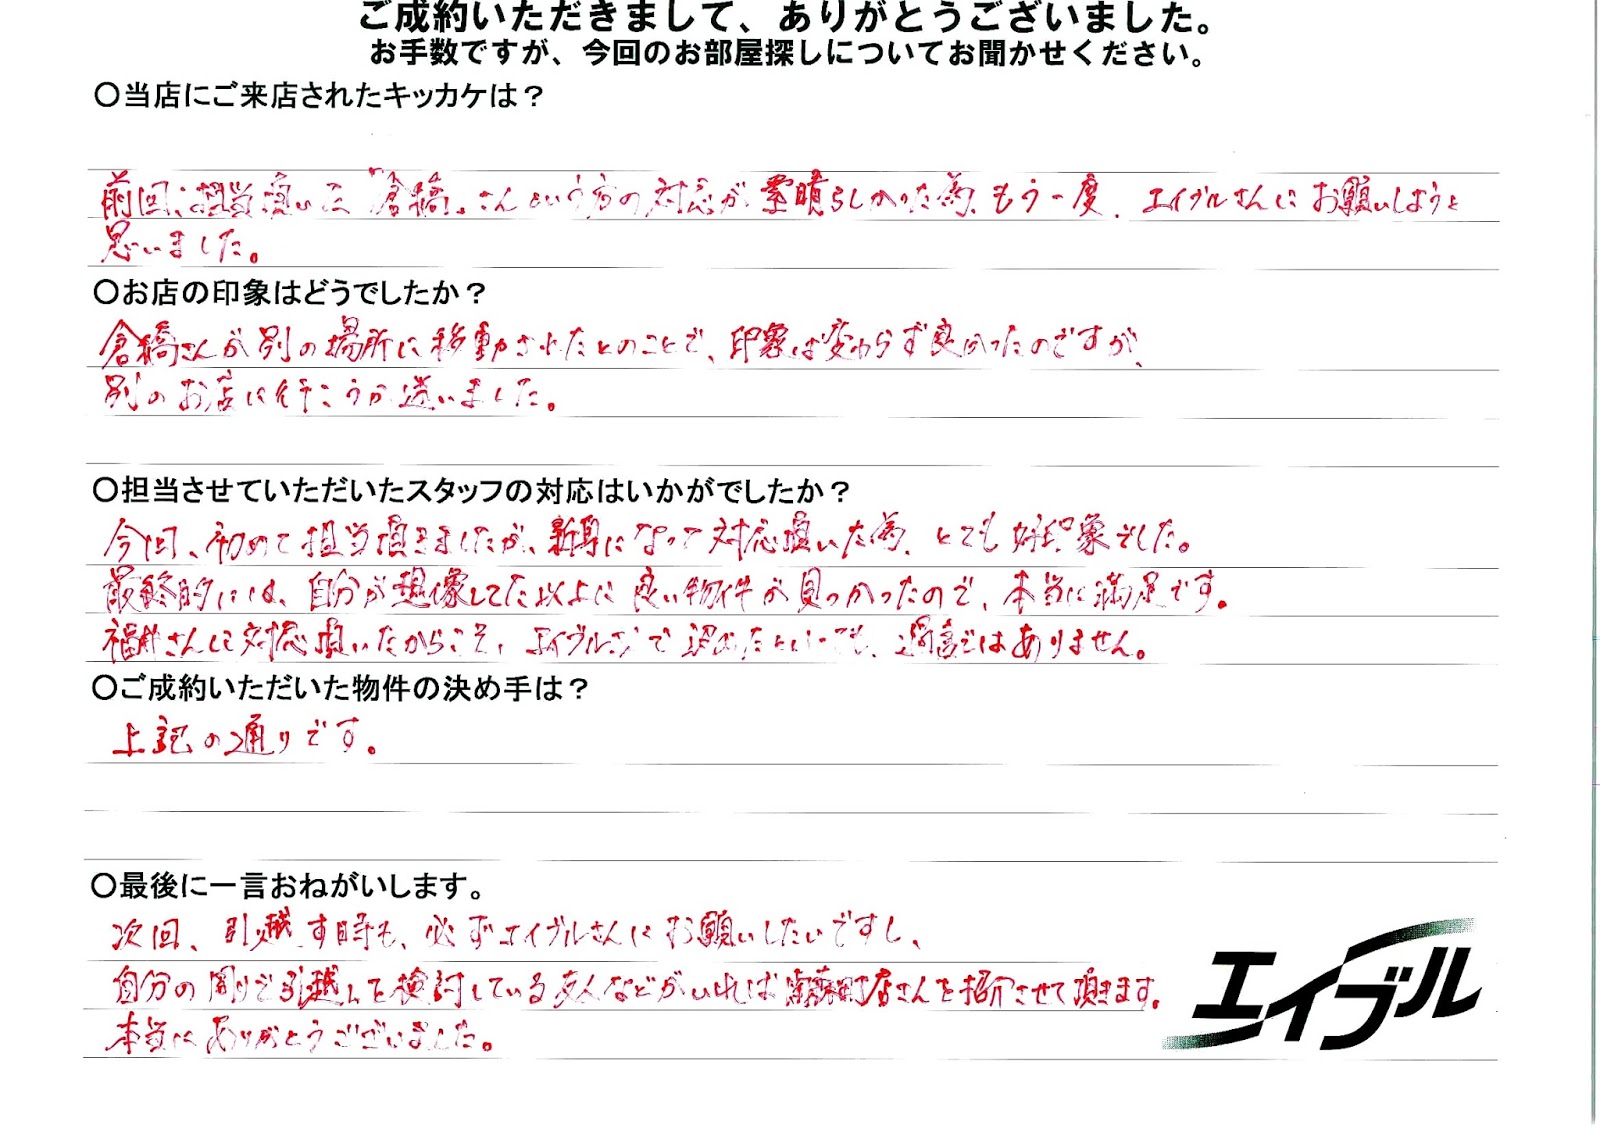 ご成約いただきまして、ありがとうございました。
お手数ですが、今回のお部屋探しについてお聞かせください。
〇当店にご来店されたキッカケは？
前回、担当頂いた「倉橋」さんという方の対応が素晴らしかった為、もう一度、エイブルさんにお願いしようと
思いました。
〇お店の印象はどうでしたか？
倉橋さんが別の場所に移動されたとのことで、印象は変わらず良かったのですが、
別のお店に行こうか迷いました。
〇担当させていただいたスタッフの対応はいかがでしたか？
今回、初めて担当頂きましたが、親身になって対応頂いた為、とても好印象でした。
最終的には、自分が想像してた以上に良い物件が見つかったので、本当に満足です。
福井さんに対応頂いたからこそ、エイブルさんで決めたといっても、過言ではありません。
〇ご成約いただいた物件の決め手は？
上記の通りです。
〇最後に一言おねがいします。
次回、引越す時も、必ずエイブルさんにお願いしたいですし、
自分の周りで引越しを検討している友人などがいれば 町店さんを紹介させて頂きます。
本当にありがとうございました。
エイブル